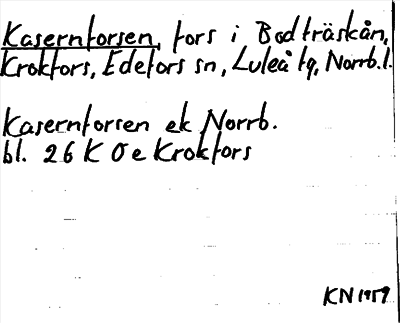 Kasernforsen, fors i Bodträskån,
Krokfors, Edefors sn, Luleå tg, Norrb.l.
Kasernforsen ek Norrb.
bl. 26 K 0 e Krokfors
KN 1959